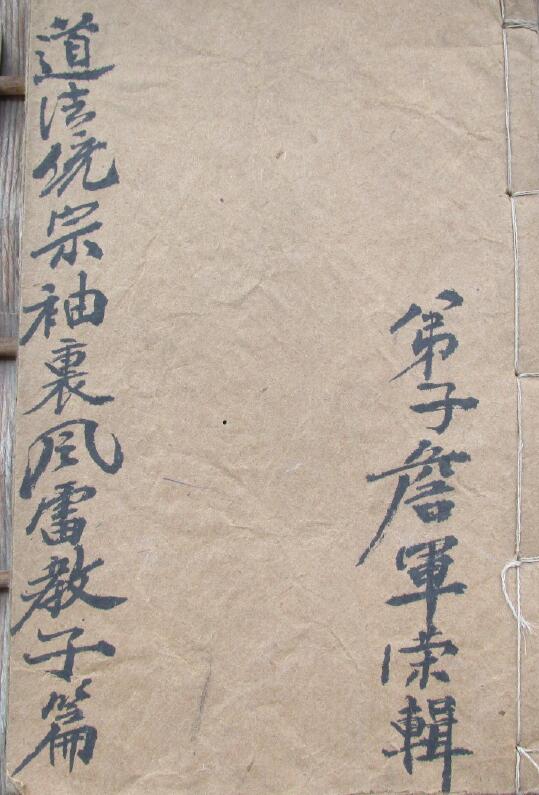 弟子詹軍荣輯
道法統宗袖裏風雷教子篇